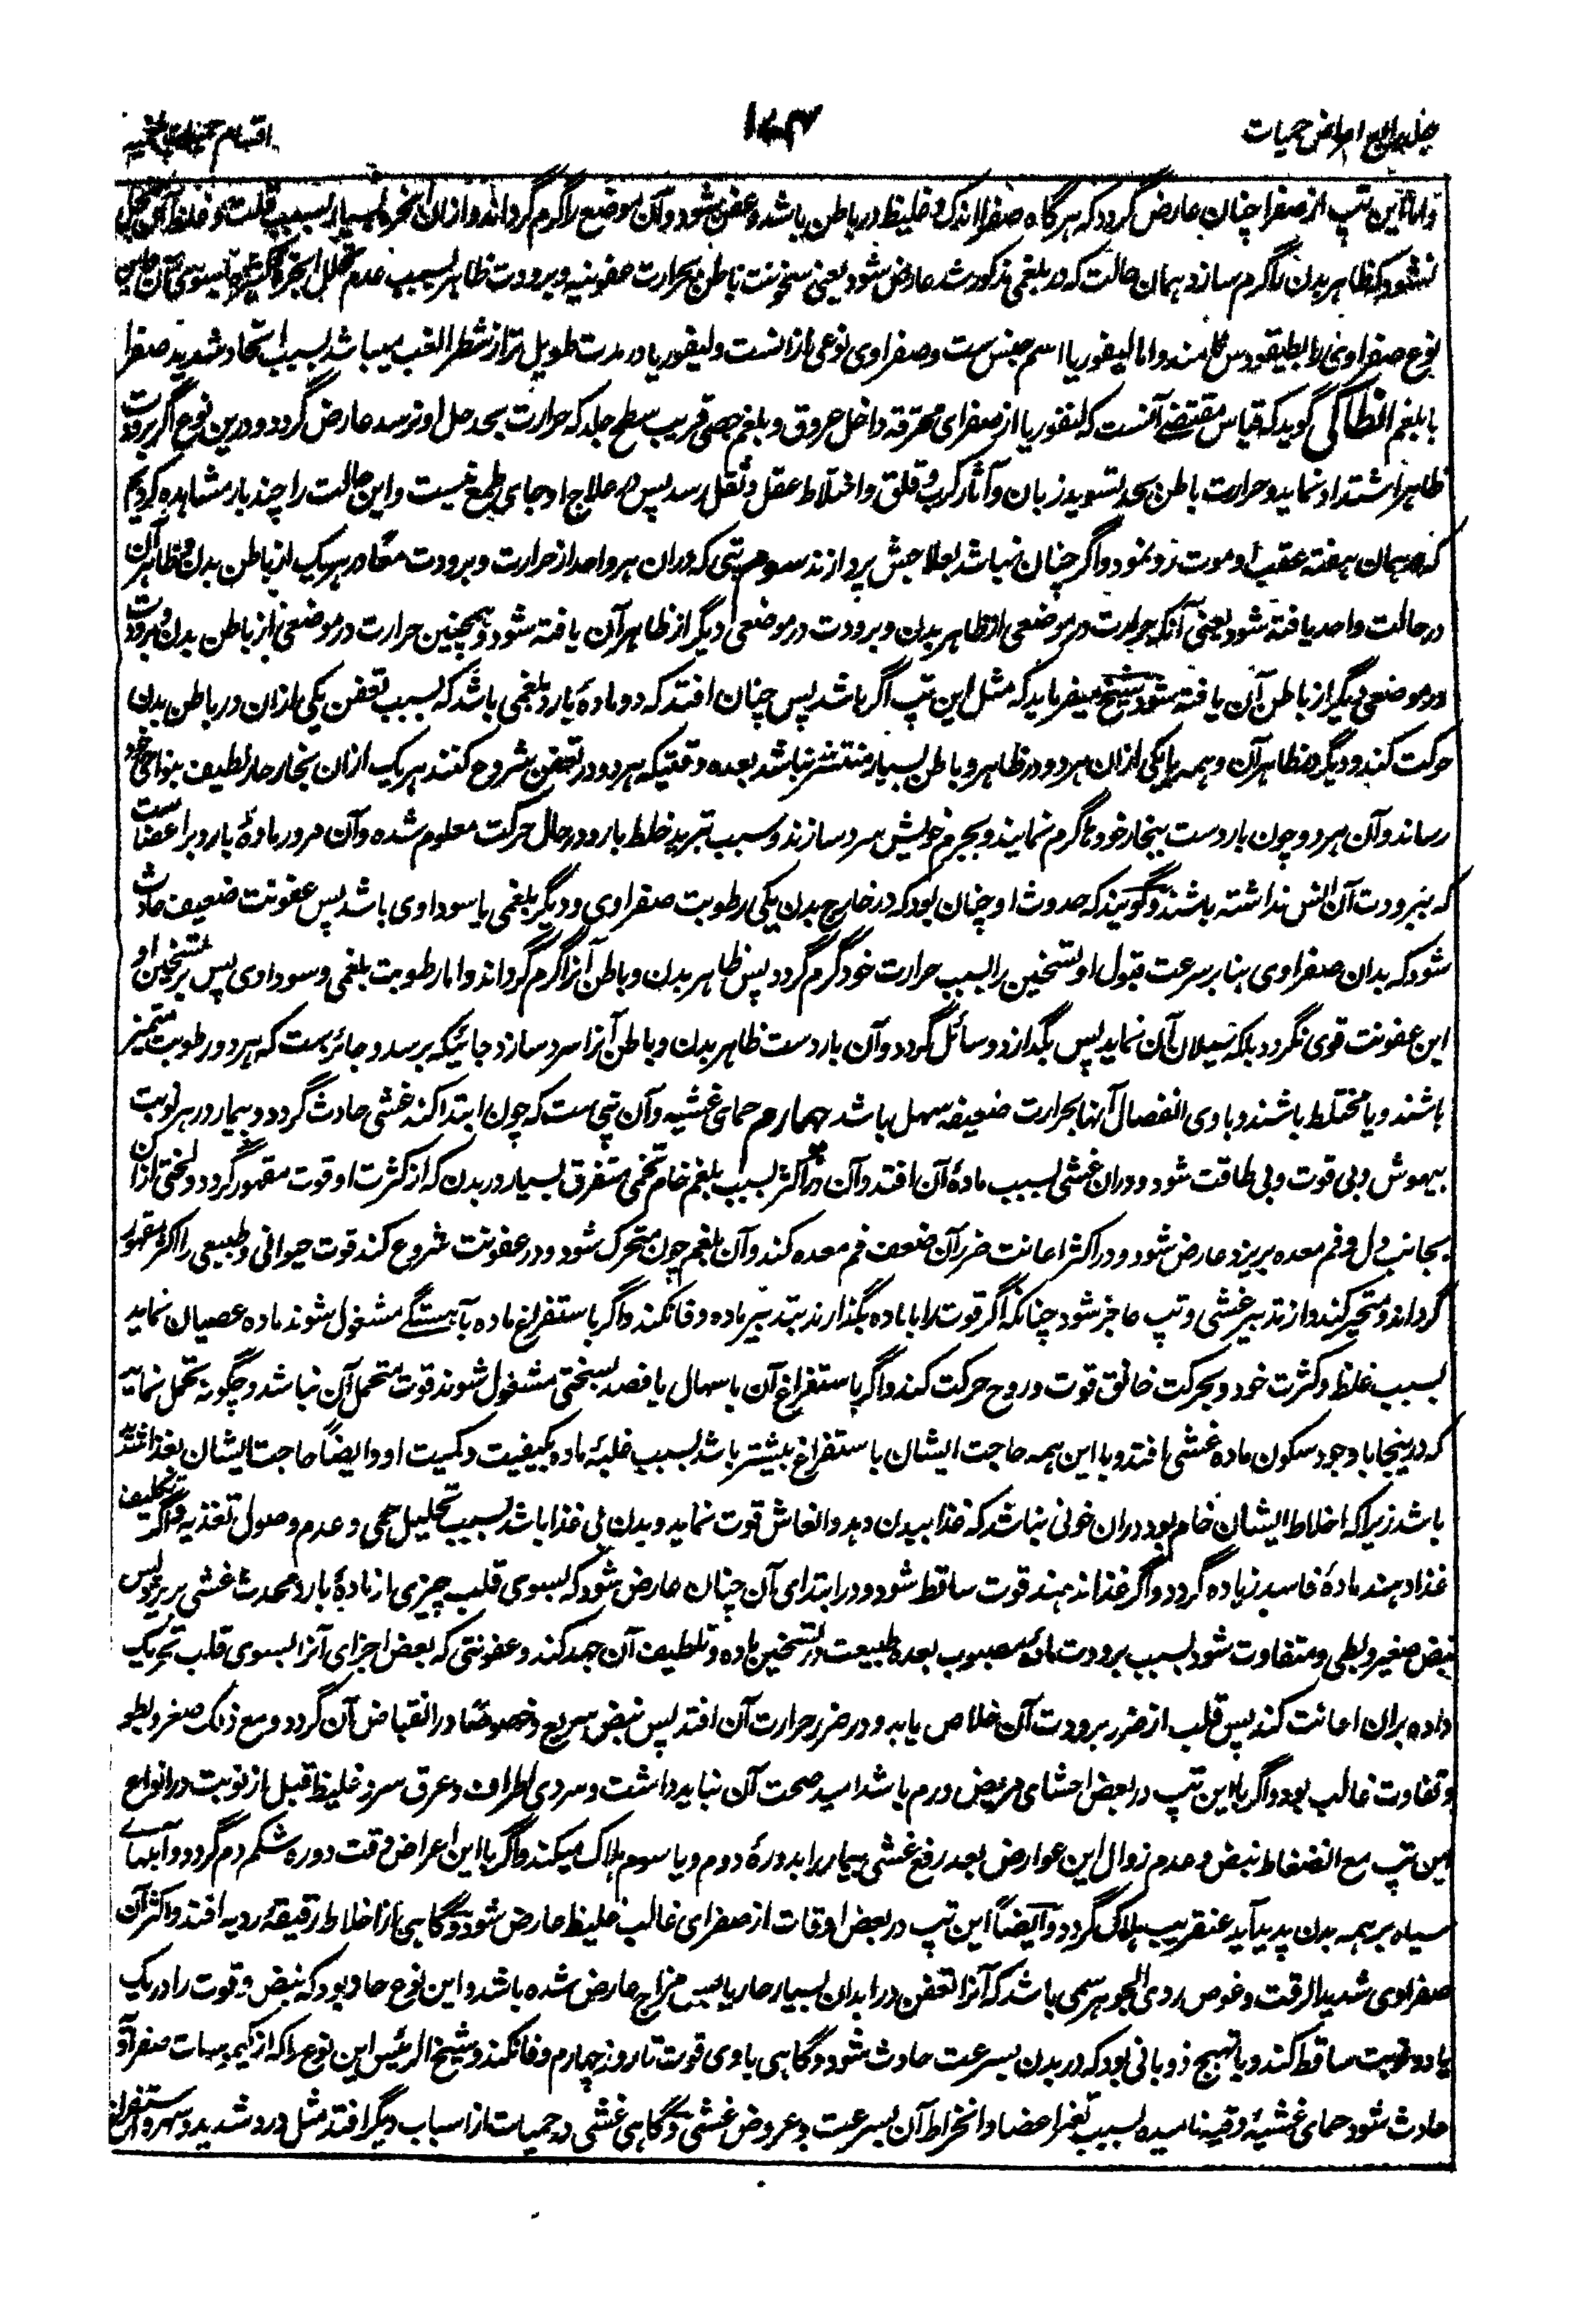 جلد رابع امراض حمیات
اقسام حمیات بلغمیه
واما این تپ از صفرا چنان عارض گردد که هرگاه صفرا اندک و غلیظ در باطن باشد و عفن شود و آن موضع را گرم گرداند و ازان ابخره بسیار بسبب قلت و غلظ آن متحلل
نشود که ظاهر بدن را گرم سازد همان حالت که در بلغمی مذکور شد عارض شود یعنی سخونت باطن بحرارت عفونیه و برودت ظاهر بسبب عدم تحلل ابخره
نوع صفراوی را لیفوریا اسم جنس ست و صفراوی نوعی ازانست و لیفوریا در مدت طویل تر از شطر الغب میباشد بسبب اتحاد شدید صفرا
با بلغم انطاکی گوید که قیاس مقتضی آنست که لنفوریا از صفرای محترقه داخل عروق و بلغم جصی قریب سطح جلد که حرارت بحد حل او نرسد عارض گردد و درین نوع اگر برودت
ظاهر اشتداد نماید و حرارت باطن بحد تسوید زبان و آثار کرب و قلق و اختلاط عقل و ثقل رسد پس در علاج او جای طمع نیست و این حالت را چند بار مشاهده کردیم
که در همان هفته عقب او موت رو نمود و اگر چنان نباشد بعلاجش پردازند سوم تپی که دران هر واحد از حرارت و برودت معا در هر یک از باطن بدن و ظاهر آن
در حالت واحد یافته شود یعنی آنکه حرارت در موضعی از ظاهر بدن و برودت در موضعی دیگر از ظاهر آن یافته شود و همچنین حرارت در موضعی از باطن بدن و برودت
در موضعی دیگر از باطن آن یافته شود شیخ میفرماید که مثل این تپ اگر باشد پس چنان افتد که دو ماده بارد بلغمی باشد که بسبب تعفن یکی ازان در باطن بدن
حرکت کند و دیگر در ظاهر آن و همه یا یکی ازان هر دو در ظاهر و باطن بسیار منتشر نباشد بعده وقتیکه هر دو در تعفن شروع کنند هر یک ازان بخار حار لطیف بنواحی خود
رساند و آن هر دو چون بارد ست ببخار خودها گرم نمایند و بجرم خویش سرد سازند و سبب تبرید خلط بارد در حال حرکت معلوم شده و آن مرور ماده بارد بر اعضا ست
که ببرودت آن الفت نداشته باشند و گویند که حدوث او چنان بود که در خارج بدن یکی رطوبت صفراوی و دیگر بلغمی یا سوداوی باشد پس عفونت ضعیف حادث
شود که بدان صفراوی بنابر سرعت قبول او تسخین را بسبب حرارت خود گرم گردد پس ظاهر بدن و باطن آنرا گرم گرداند و اما رطوبت بلغمی و سوداوی پس بر تسخین او
این عفونت قوی نگردد بلکه تسیلان آن نماید پس بگدازد و سائل گردد و آن بارد ست ظاهر بدن و باطن آنرا سرد سازد جائیکه برسد و جائز ست که هر دو رطوبت متمیز
باشند و یا مختلط باشند و بادی انفصال آنها بحرارت ضعیفه سهل باشد چهارم حمای غشیه و آن تپی ست که چون ابتدا کند غشی حادث گردد و بیمار در هر نوبت
بیهوش و بی قوت و بی طاقت شود و دران غشی بسبب ماده آن افتد و آن در اکثر بسبب بلغم خام تخمی متفرق بسیار در بدن که از کثرت او قوت مقهور گردد و لختی ازان
بجانب دل و فم معده بریزد عارض شود و در اکثر اعانت ضرر آن ضعف فم معده کند و آن بلغم چون متحرک شود و در عفونت شروع کند قوت حیوانی و طبیعی را اکثر مقهور
گرداند و متحیر کند و از تدبیر غشی و تپ عاجز شود چنانکه اگر قوت را با ماده بگذارند بتدبیر ماده وفا نکند و اگر باستفراغ ماده بآهستگی مشغول شوند ماده عصیان نماید
بسبب غلظ و کثرت خود و بحرکت خانق قوت و روح حرکت کند و اگر باستفراغ آن باسهال یا فصد بسختی مشغول شوند قوت متحمل آن نباشد و چگونه تحمل نماید
که درینجا با وجود سکون ماده غشی افتد و با این همه حاجت ایشان باستفراغ بیشتر باشد بسبب غلبه ماده بکیفیت و کمیت او و ایضاً حاجت ایشان بغذا شدید
باشد زیرا که اخلاط ایشان خام بود دران خونی نباشد که غذا ببدن دهد و انعاش قوت نماید و بدن بی غذا باشد بسبب تحلیل حمی و عدم وصول تغذیه و اگر تکلیف
غذا دهند ماده فاسد زیاده گردد و اگر غذا ندهند قوت ساقط شود و در ابتدای آن چنان عارض شود که بسوی قلب چیزی از ماده بارد محدث غشی بریزد پس
نبض صغیر و بطی و متفاوت شود بسبب برودت ماده مصبوب بعده طبیعت در تسخین ماده و تلطیف آن جهد کند و عفونتی که بعض اجزای آنرا بسوی قلب تحریک
داده بران اعانت کند پس قلب از ضرر برودت آن خلاص یابد و در ضرر حرارت آن افتد پس نبض سریع و خصوصاً در انقباض آن گردد و مع ذلک صغر و بطو
و تفاوت غالب بود و اگر با این تپ در بعض احشای مریض ورم باشد امید صحت آن نباید داشت و سردی اطراف و عرق سرد غلیظ قبل از نوبت در انواع
این تپ مع انضغاط نبض و عدم زوال این عوارض بعد رفع غشی بیمار را بدوره دوم و یا سوم هلاک میکند و اگر با این اعراض وقت دوره شکم دم گردد و آبلهای
سیاه بر همه بدن پدید آید عنقریب هلاک گردد و ایضاً این تپ در بعض اوقات از صفرای غالب غلیظ عارض شود و گاهی از اخلاط رقیقه ردیه افتد و اکثر آن
صفراوی شدید الرقت و غوص ردی الجوهر سمی باشد که آنرا تعفن در ابدان بسیار حار یابس مزاج عارض شده باشد و این نوع حاد بود که نبض و قوت را در یک
یا دو نوبت ساقط کند و با تهیج ذوبانی بود که در بدن بسرعت حادث شود و گاهی با وی قوت تا روز چهارم وفا نکند و شیخ الرئیس این نوع را که از کیموسات صفراوی
حادث شود حمای غشیه دقیقه نامیده بسبب تغیر اعضا و انخراط آن بسرعت و عروض غشی و گاهی غشی در حمیات از اسباب دیگر افتد مثل درد شدید و سهر و استفراغ